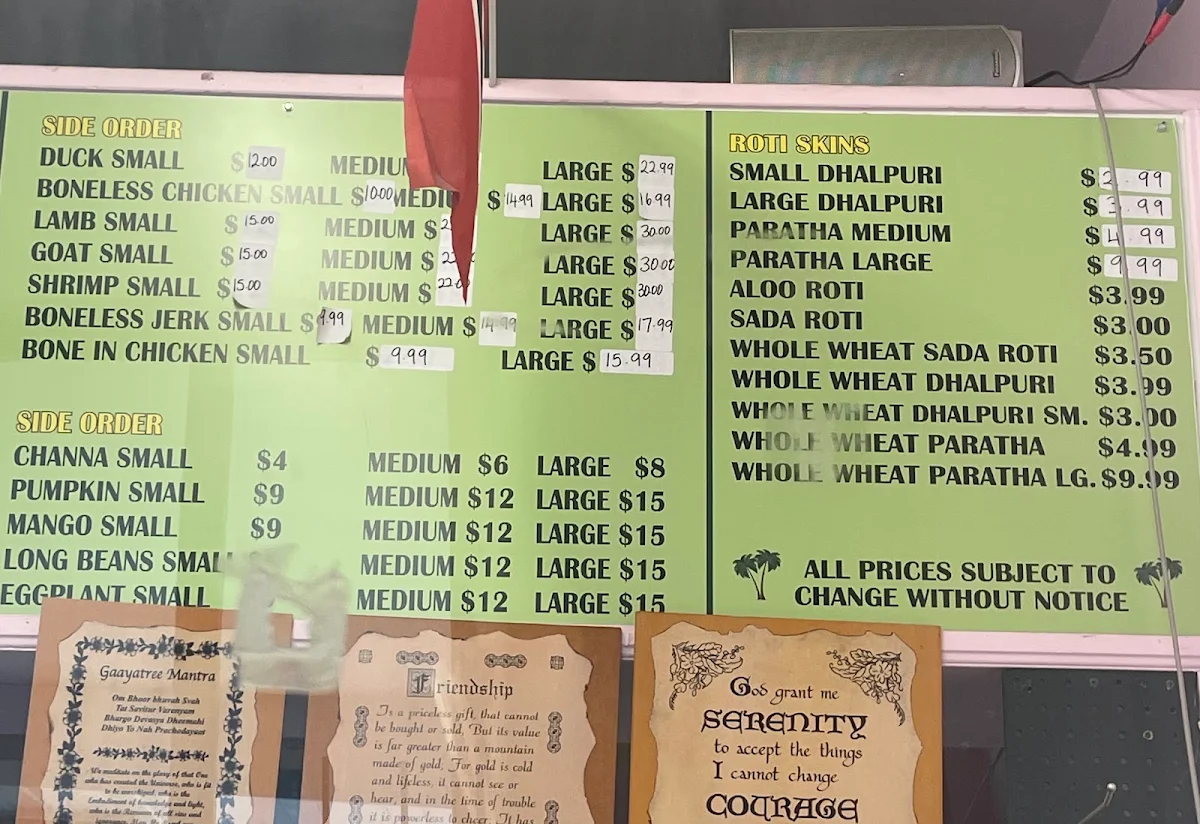 SIDE ORDER
DUCK SMALL $12.00 MEDIUM LARGE $22.99
BONELESS CHICKEN SMALL $10.00 MEDIU $14.99 LARGE $16.99
LAMB SMALL $15.00 MEDIUM $ LARGE $30.00
GOAT SMALL $15.00 MEDIUM $ LARGE $30.00
SHRIMP SMALL $15.00 MEDIUM $22.0 LARGE $30.00
BONELESS JERK SMALL $9.99 MEDIUM $14.99 LARGE $17.99
BONE IN CHICKEN SMALL $9.99 LARGE $15.99
SIDE ORDER
CHANNA SMALL $4 MEDIUM $6 LARGE $8
PUMPKIN SMALL $9 MEDIUM $12 LARGE $15
MANGO SMALL $9 MEDIUM $12 LARGE $15
LONG BEANS SMALL MEDIUM $12 LARGE $15
EGGPLANT SMALL MEDIUM $12 LARGE $15
ROTI SKINS
SMALL DHALPURI $2.99
LARGE DHALPURI $3.99
PARATHA MEDIUM $4.99
PARATHA LARGE $9.99
ALOO ROTI $3.99
SADA ROTI $3.00
WHOLE WHEAT SADA ROTI $3.50
WHOLE WHEAT DHALPURI $3.99
WHOLE WHEAT DHALPURI SM. $3.00
WHOLE WHEAT PARATHA $4.99
WHOLE WHEAT PARATHA LG. $9.99
ALL PRICES SUBJECT TO
CHANGE WITHOUT NOTICE
Gaayatree Mantra
Om Bhoor bhuvah Svah
Tat Savitur Varenyam
Bhargo Devasya Dheemahi
Dhiyo Yo Nah Prachodayaat
We meditate on the glory of that One
who has created the Universe, who is fit
to be worshipped, who is the
Embodiment of knowledge and light,
who is the Remover of all sins and
Friendship
Is a priceless gift, that cannot
be bought or sold, But its value
is far greater than a mountain
made of gold, For gold is cold
and lifeless, it cannot see or
hear, and in the time of trouble
it is powerless to cheer. It has
God grant me
SERENITY
to accept the things
I cannot change
COURAGE